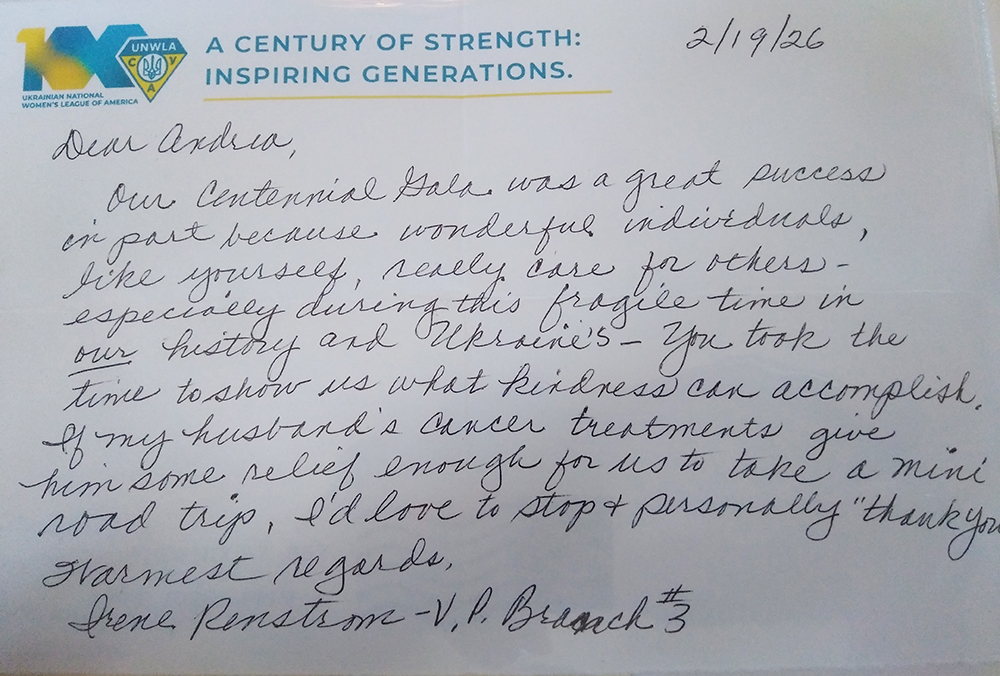 100
UNWLA
C V
A
UKRAINIAN NATIONAL
WOMEN'S LEAGUE OF AMERICA
A CENTURY OF STRENGTH:
INSPIRING GENERATIONS.
2/19/26
Dear Andrea,
Our Centennial Gala was a great success
in part because wonderful individuals,
like yourself, really care for others –
especially during this fragile time in
our history and Ukraine's – You took the
time to show us what kindness can accomplish.
If my husband's cancer treatments give
him some relief enough for us to take a mini
road trip, I'd love to stop & personally "thank you
Warmest regards,
Irene Renstrom – V.P. Branch #3